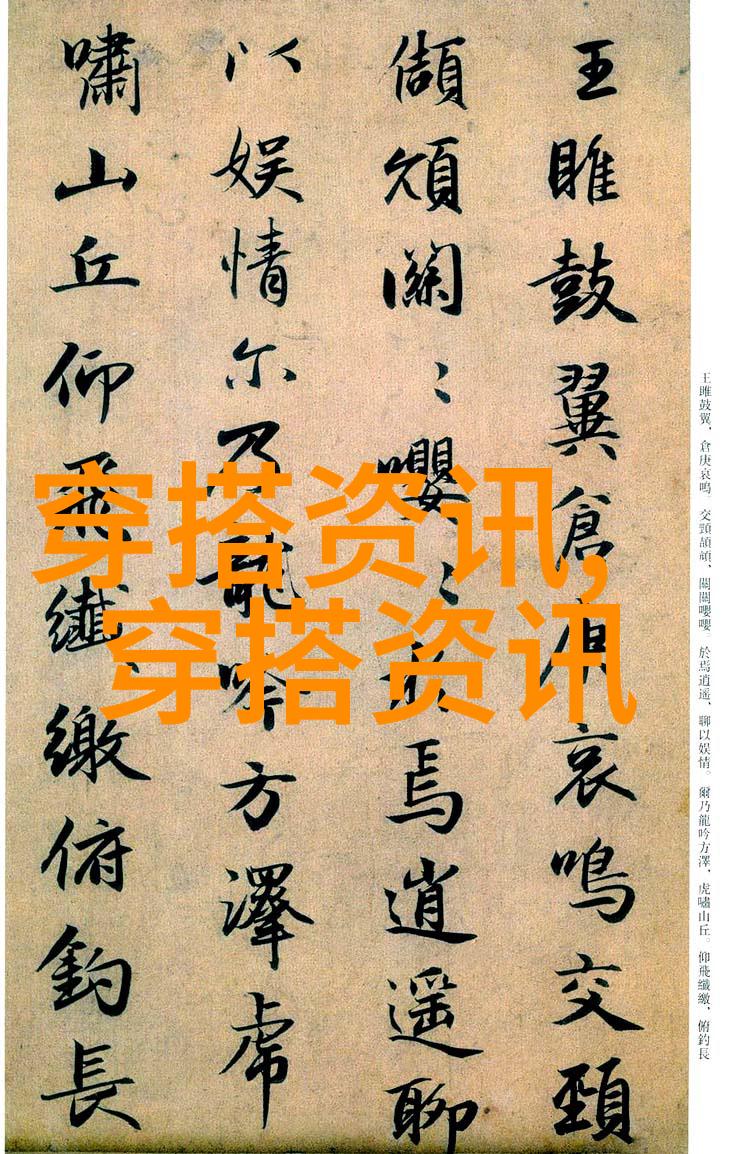 王雎鼓翼倉庚哀鳴交頸
頡頏關〻嚶〻於焉逍遥聊
以娱情尔乃龍吟方澤虎
嘯山丘仰飛纖繳俯釣長
穿搭资讯,
穿搭资讯
王雎鼓翼、倉庚哀鳴。交頸頡頏、關關嚶嚶。於焉逍遥、聊以娱情。爾乃龍吟方澤、虎嘯山丘。仰飛纖繳、俯釣長